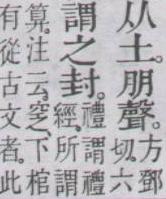 从土。朋聲。方鄧
切。六
謂之封。禮謂禮
經。所謂
算。注云。窆、下棺
有從古文者。此